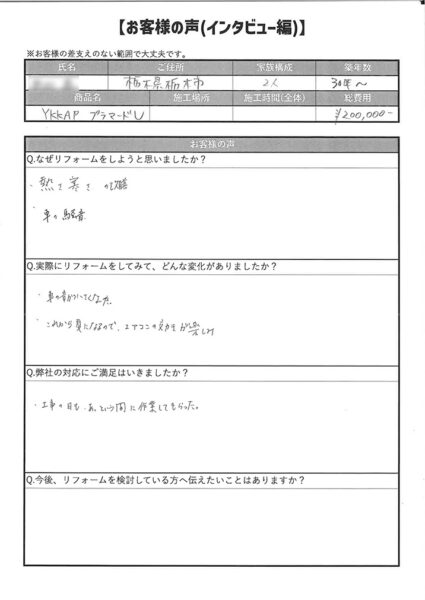 【お客様の声(インタビュー編)】
※お客様の差支えのない範囲で大丈夫です。
氏名 ご住所 家族構成 築年数
栃木県栃木市 2人 30年〜
商品名 施工場所 施工時間(全体) 総費用
YKKAP プラマードU ¥200,000-
お客様の声
Q.なぜリフォームをしようと思いましたか？
・熱さ寒さの
・車の騒音
Q.実際にリフォームをしてみて、どんな変化がありましたか？
・車の音が なった。
・これから夏になるので、エアコンの効きが楽しみ
Q.弊社の対応にご満足はいきましたか？
・工事の日も、あっという間に作業してもらった。
Q.今後、リフォームを検討している方へ伝えたいことはありますか？